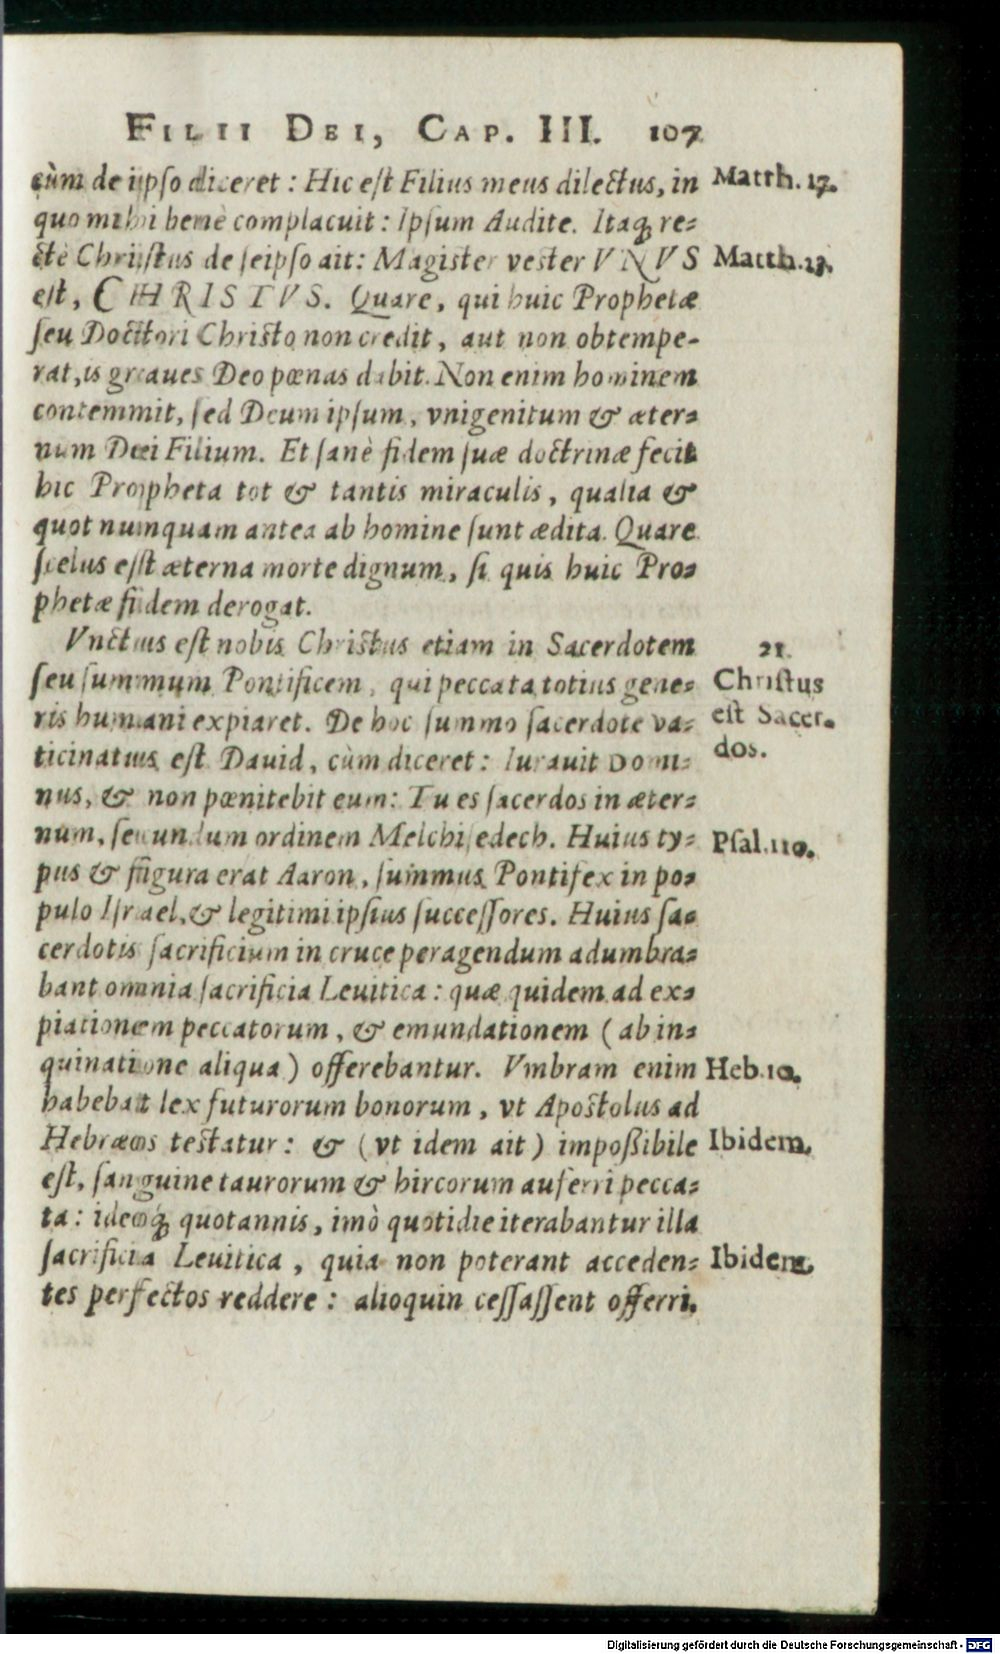 FILII DEI, CAP. III. 107
cùm de ipso diceret: Hic est Filius meus dilectus, in
Matth. 17.
quo mihi benè complacuit: Ipsum Audite. Itaq; re-
ctè Christus de seipso ait: Magister vester VNVS
Matth. 23.
est, CHRISTVS. Quare, qui huic Prophetæ
seu Doctori Christo non credit, aut non obtempe-
rat, is graues Deo pœnas dabit. Non enim hominem
contemnit, sed Deum ipsum, vnigenitum & æter-
num Dei Filium. Et sanè fidem suæ doctrinæ fecit
hic Propheta tot & tantis miraculis, qualia &
quot numquam antea ab homine sunt ædita. Quare
scelus est æterna morte dignum, si quis huic Pro-
phetæ fidem derogat.
Vnctus est nobis Christus etiam in Sacerdotem
21.
seu summum Pontificem, qui peccata totius gene-
Christus
ris humani expiaret. De hoc summo sacerdote va-
est Sacer-
ticinatus est Dauid, cùm diceret: Iurauit DOMI-
dos.
nus, & non pœnitebit eum: Tu es sacerdos in æter-
num, secundum ordinem Melchisedech. Huius ty-
Psal. 110.
pus & figura erat Aaron, summus Pontifex in po-
pulo Israel, & legitimi ipsius successores. Huius sa-
cerdotis sacrificium in cruce peragendum adumbra-
bant omnia sacrificia Leuitica: quæ quidem ad ex-
piationem peccatorum, & emundationem (ab in-
quinatione aliqua) offerebantur. Vmbram enim
Heb. 10.
habebat lex futurorum bonorum, vt Apostolus ad
Hebræos testatur: & (vt idem ait) impoßibile
Ibidem.
est, sanguine taurorum & hircorum auferri pecca-
ta: ideoq; quotannis, imò quotidie iterabantur illa
sacrificia Leuitica, quia non poterant acceden-
Ibidem.
tes perfectos reddere: alioquin cessassent offerri,
Digitalisierung gefördert durch die Deutsche Forschungsgemeinschaft - DFG